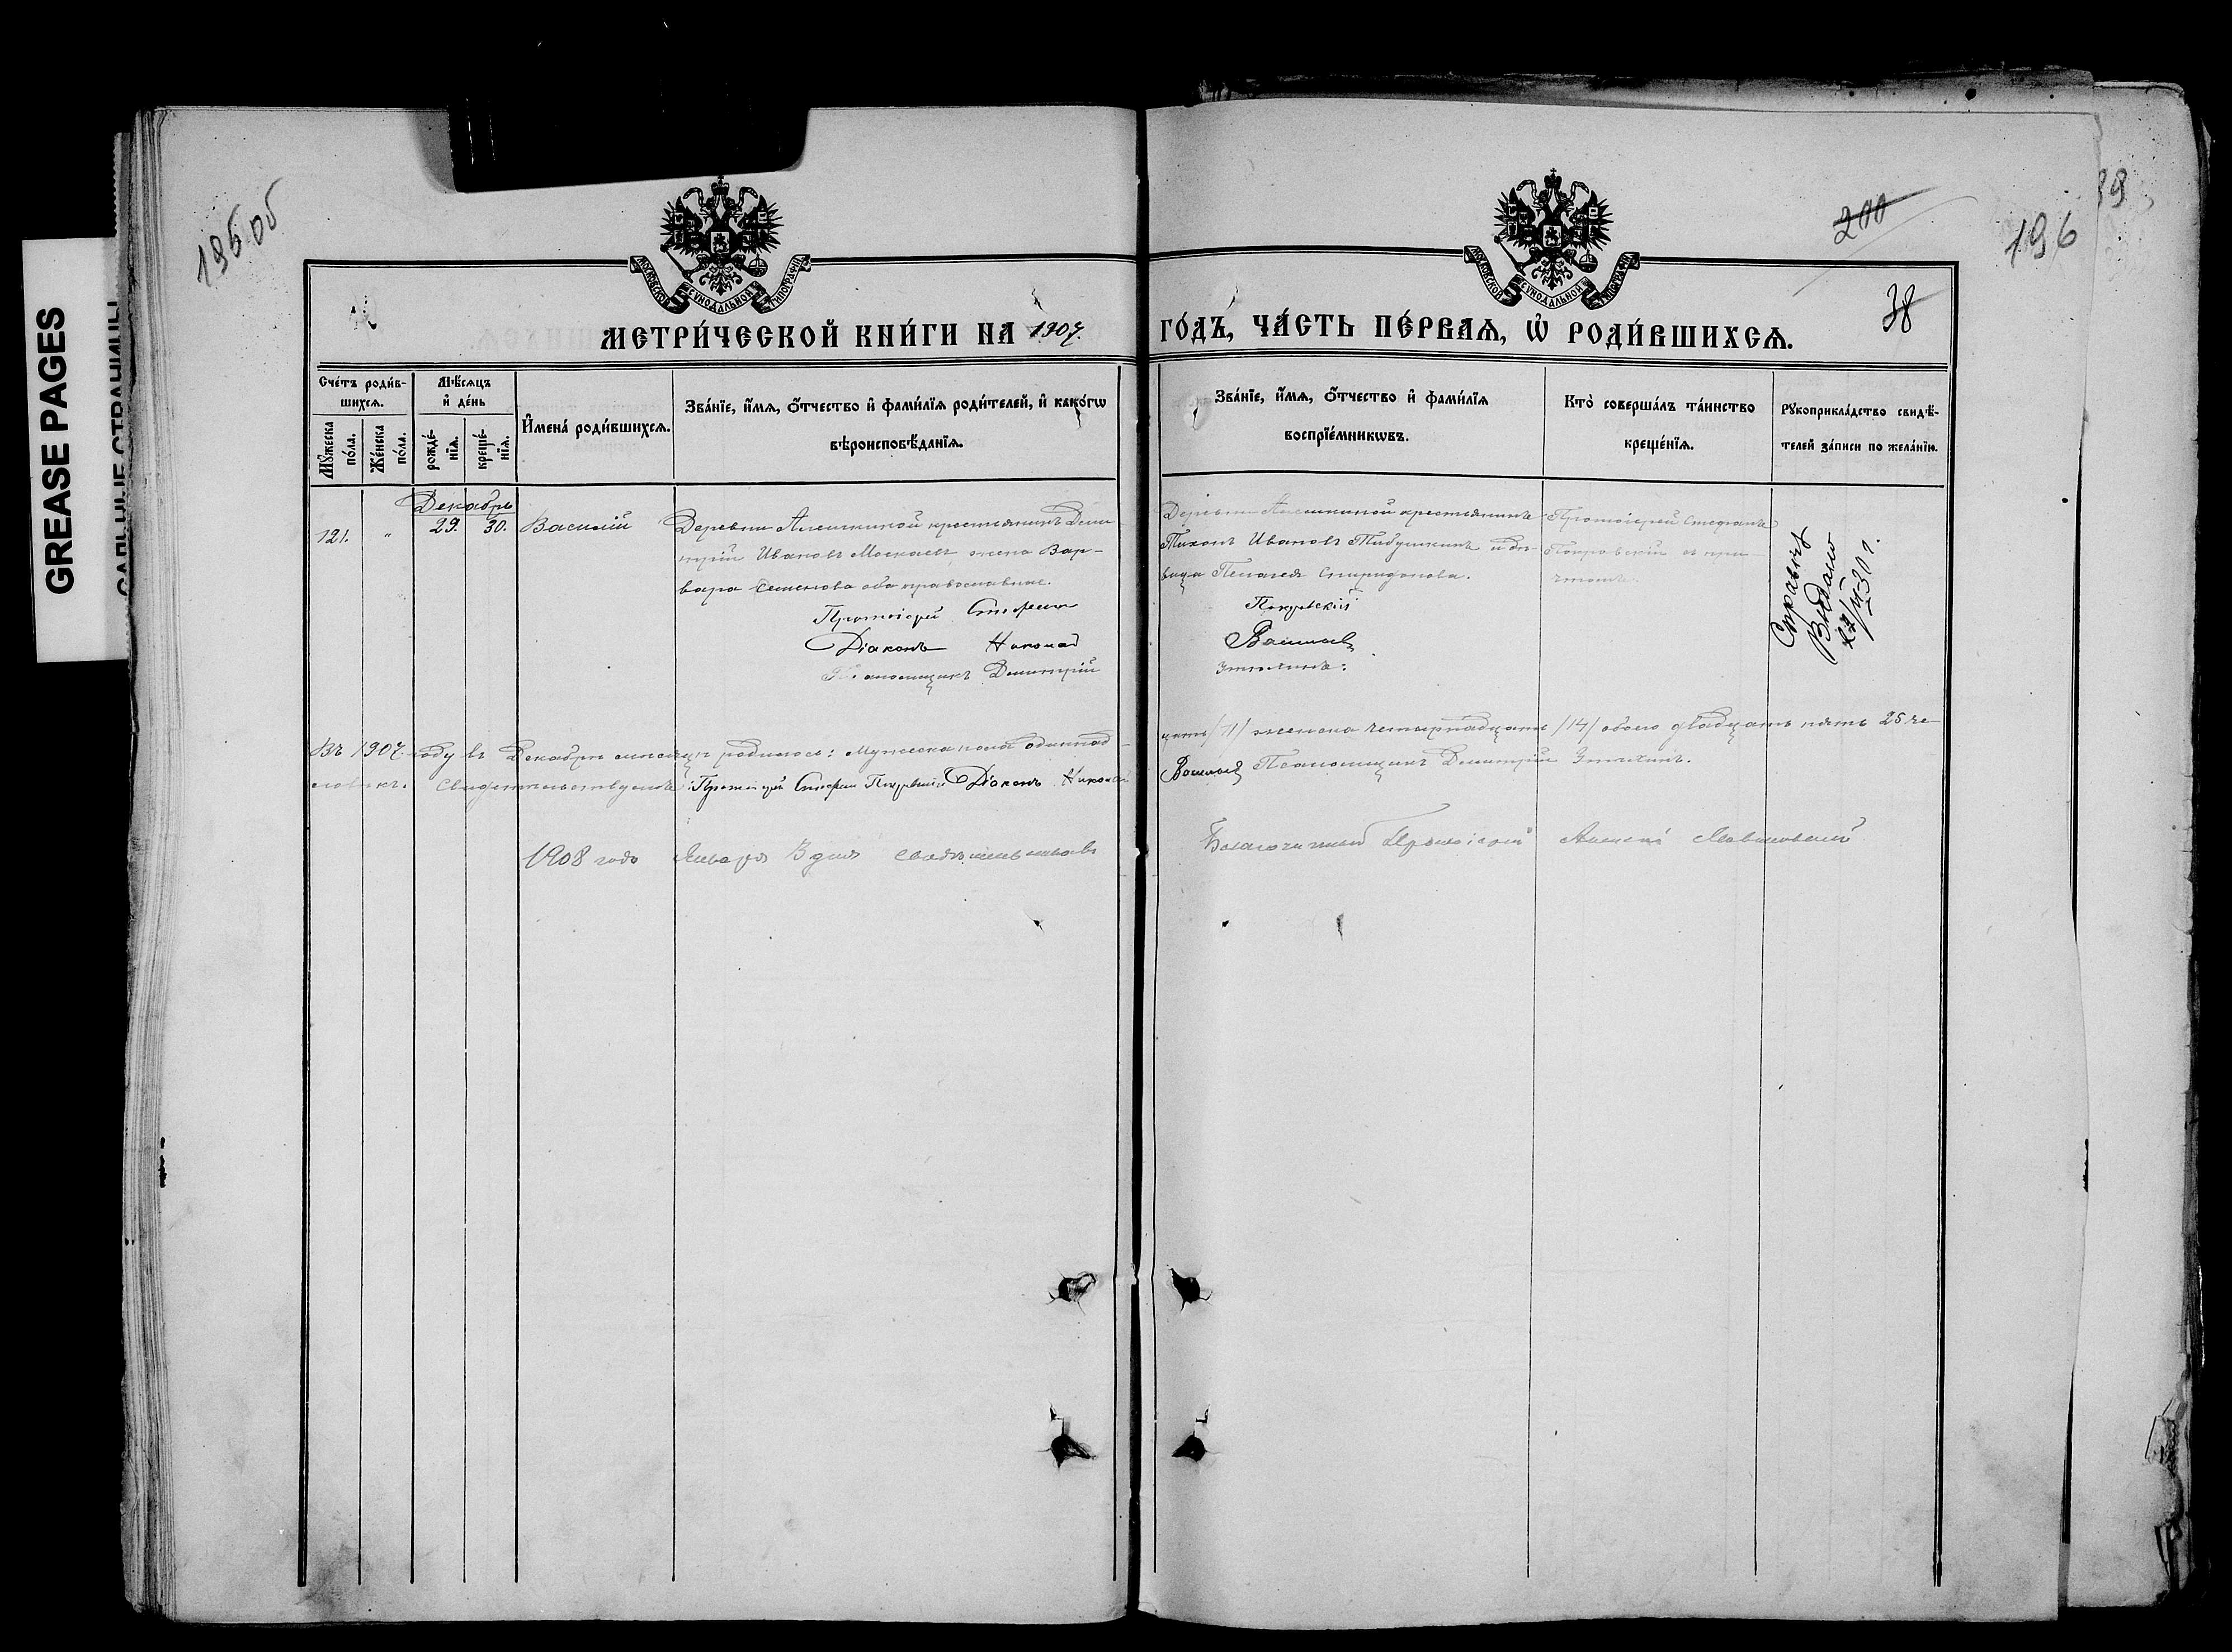 GREASE PAGES
195 об
200
196
38
МОСКОВСКОЙ СѴНОДАЛЬНОЙ ТИПОГРАФІИ
МОСКОВСКОЙ СѴНОДАЛЬНОЙ ТИПОГРАФІИ
МЕТРИ́ЧЕСКОЙ КНИ́ГИ НА 1907.
ГО́ДЪ, ЧА́СТЬ ПЕ́РВАѦ, Ѡ҆ РОДИ́ВШИХСѦ.
Сче́тъ роди́в-
шихсѧ.
Мꙋ́жеска по́ла.
Же́нска по́ла.
Мѣ́сѧцъ
и҆ де́нь
рожде́-
нїѧ.
креще́-
нїѧ.
И҆мена̀ роди́вшихсѧ.
Зва́нїе, и҆́мѧ, ѻ҆́тчество и҆ фами́лїѧ роди́телей, и҆ како́гѡ
вѣроисповѣ́данїѧ.
Зва́нїе, и҆́мѧ, ѻ҆́тчество и҆ фами́лїѧ
воспрїе́мникѡвъ.
Кто̀ соверша́лъ та́инство
креще́нїѧ.
Рꙋкоприкла́дство свидѣ́-
телей за́писи по жела́нїю.
Декабрь
121. " 29. 30. Василій
Деревни Алешкиной крестьянинъ Дми-
трій Ивановъ Москаевъ жена Вар-
вара Семенова оба православные.
Протоіерей Стефанъ
Діаконъ Николай
Псаломщикъ Димитрій
Деревни Алешкиной крестьянинъ
Тихонъ Ивановъ и дѣ-
вица Пелагея Спиридонова.
Покровскій
Васильевъ
Протоіерей Стефанъ
Покровскій съ при-
чтомъ.
Справку
Выдал
30 г.
Въ 1907 году въ Декабрѣ мѣсяцѣ родилось: Мужеска пола одиннад-
цать /11/ женска четырнадцать /14/ обоего двадцать пять 25 че-
ловѣкъ. Свидетельствуемъ: Протоіерей Стефанъ Покровскій Діаконъ Николай
Васильевъ Псаломщикъ Димитрій
1908 года Января 3 дня свидѣтельствовалъ
Благочинный Протоіерей Алексѣй